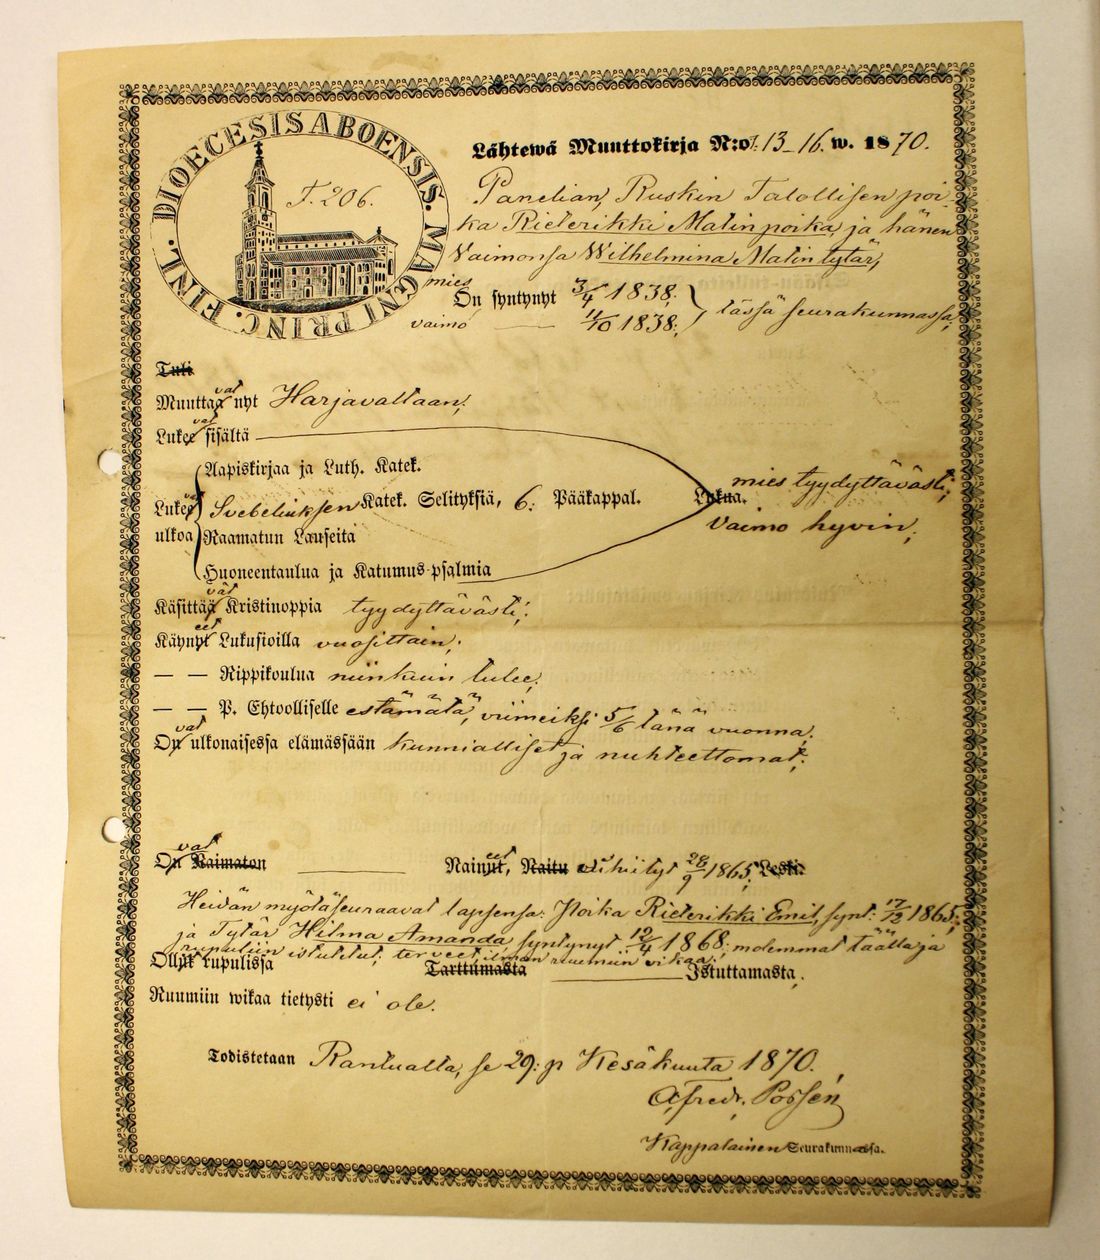 DIOECESIS ABOENSIS. MAGNI PRINC. FINL.
T. 206.
Lähtewä Muuttokirja N:o 13-16. w. 1870.
Panelian, Ruskin Talollisen poi-
ka Rieterikki Matinpoika, ja hänen
Vaimonsa Wilhelmina Matintytär,
mies
On syntynyt 3/4 1838; tässä seurakunnassa,
vaimo — 11/10 1838;
Tuli
vat
Muuttaa nyt Harjavaltaan;
vat
Lukee sisältä
Aapiskirjaa ja Luth. Katek.
mies tyydyttävästi;
Lukee Svebeliuksen Katek. Selityksiä, 6: Pääkappal. Lukua.
ulkoa Raamatun Lauseita
vaimo hyvin;
Huoneentaulua ja Katumus-psalmia
vät
Käsittää Kristinoppia tyydyttävästi;
eet
Käynyt Lukusioilla vuosittain;
— — Rippikoulua niinkuin tulee;
— — P. Ehtoolliselle estämätä, viimeiksi 5/6 tänä vuonna;
vat
On ulkonaisessa elämässään kunnialliset ja nuhteettomat;
vat
On Naimaton — Nainut, Naitu vihityt 28/9 1865; Leski.
eet
Heidän myötäseuraavat lapsensa: Poika Rieterikki Emil, synt: 17/12 1865;
ja Tytär Hilma Amanda, syntynyt 12/4 1868; molemmat täällä ja
rupuliin istutetut; terveet ilman ruumiin vikaa;
Ollut rupulissa Tarttumasta — Istuttamasta,
Ruumiin wikaa tietysti ei ole.
Todistetaan Rantualla, se 29: p Kesäkuuta 1870.
Alfredr. Possén
Kappalainen Seurakunnassa.